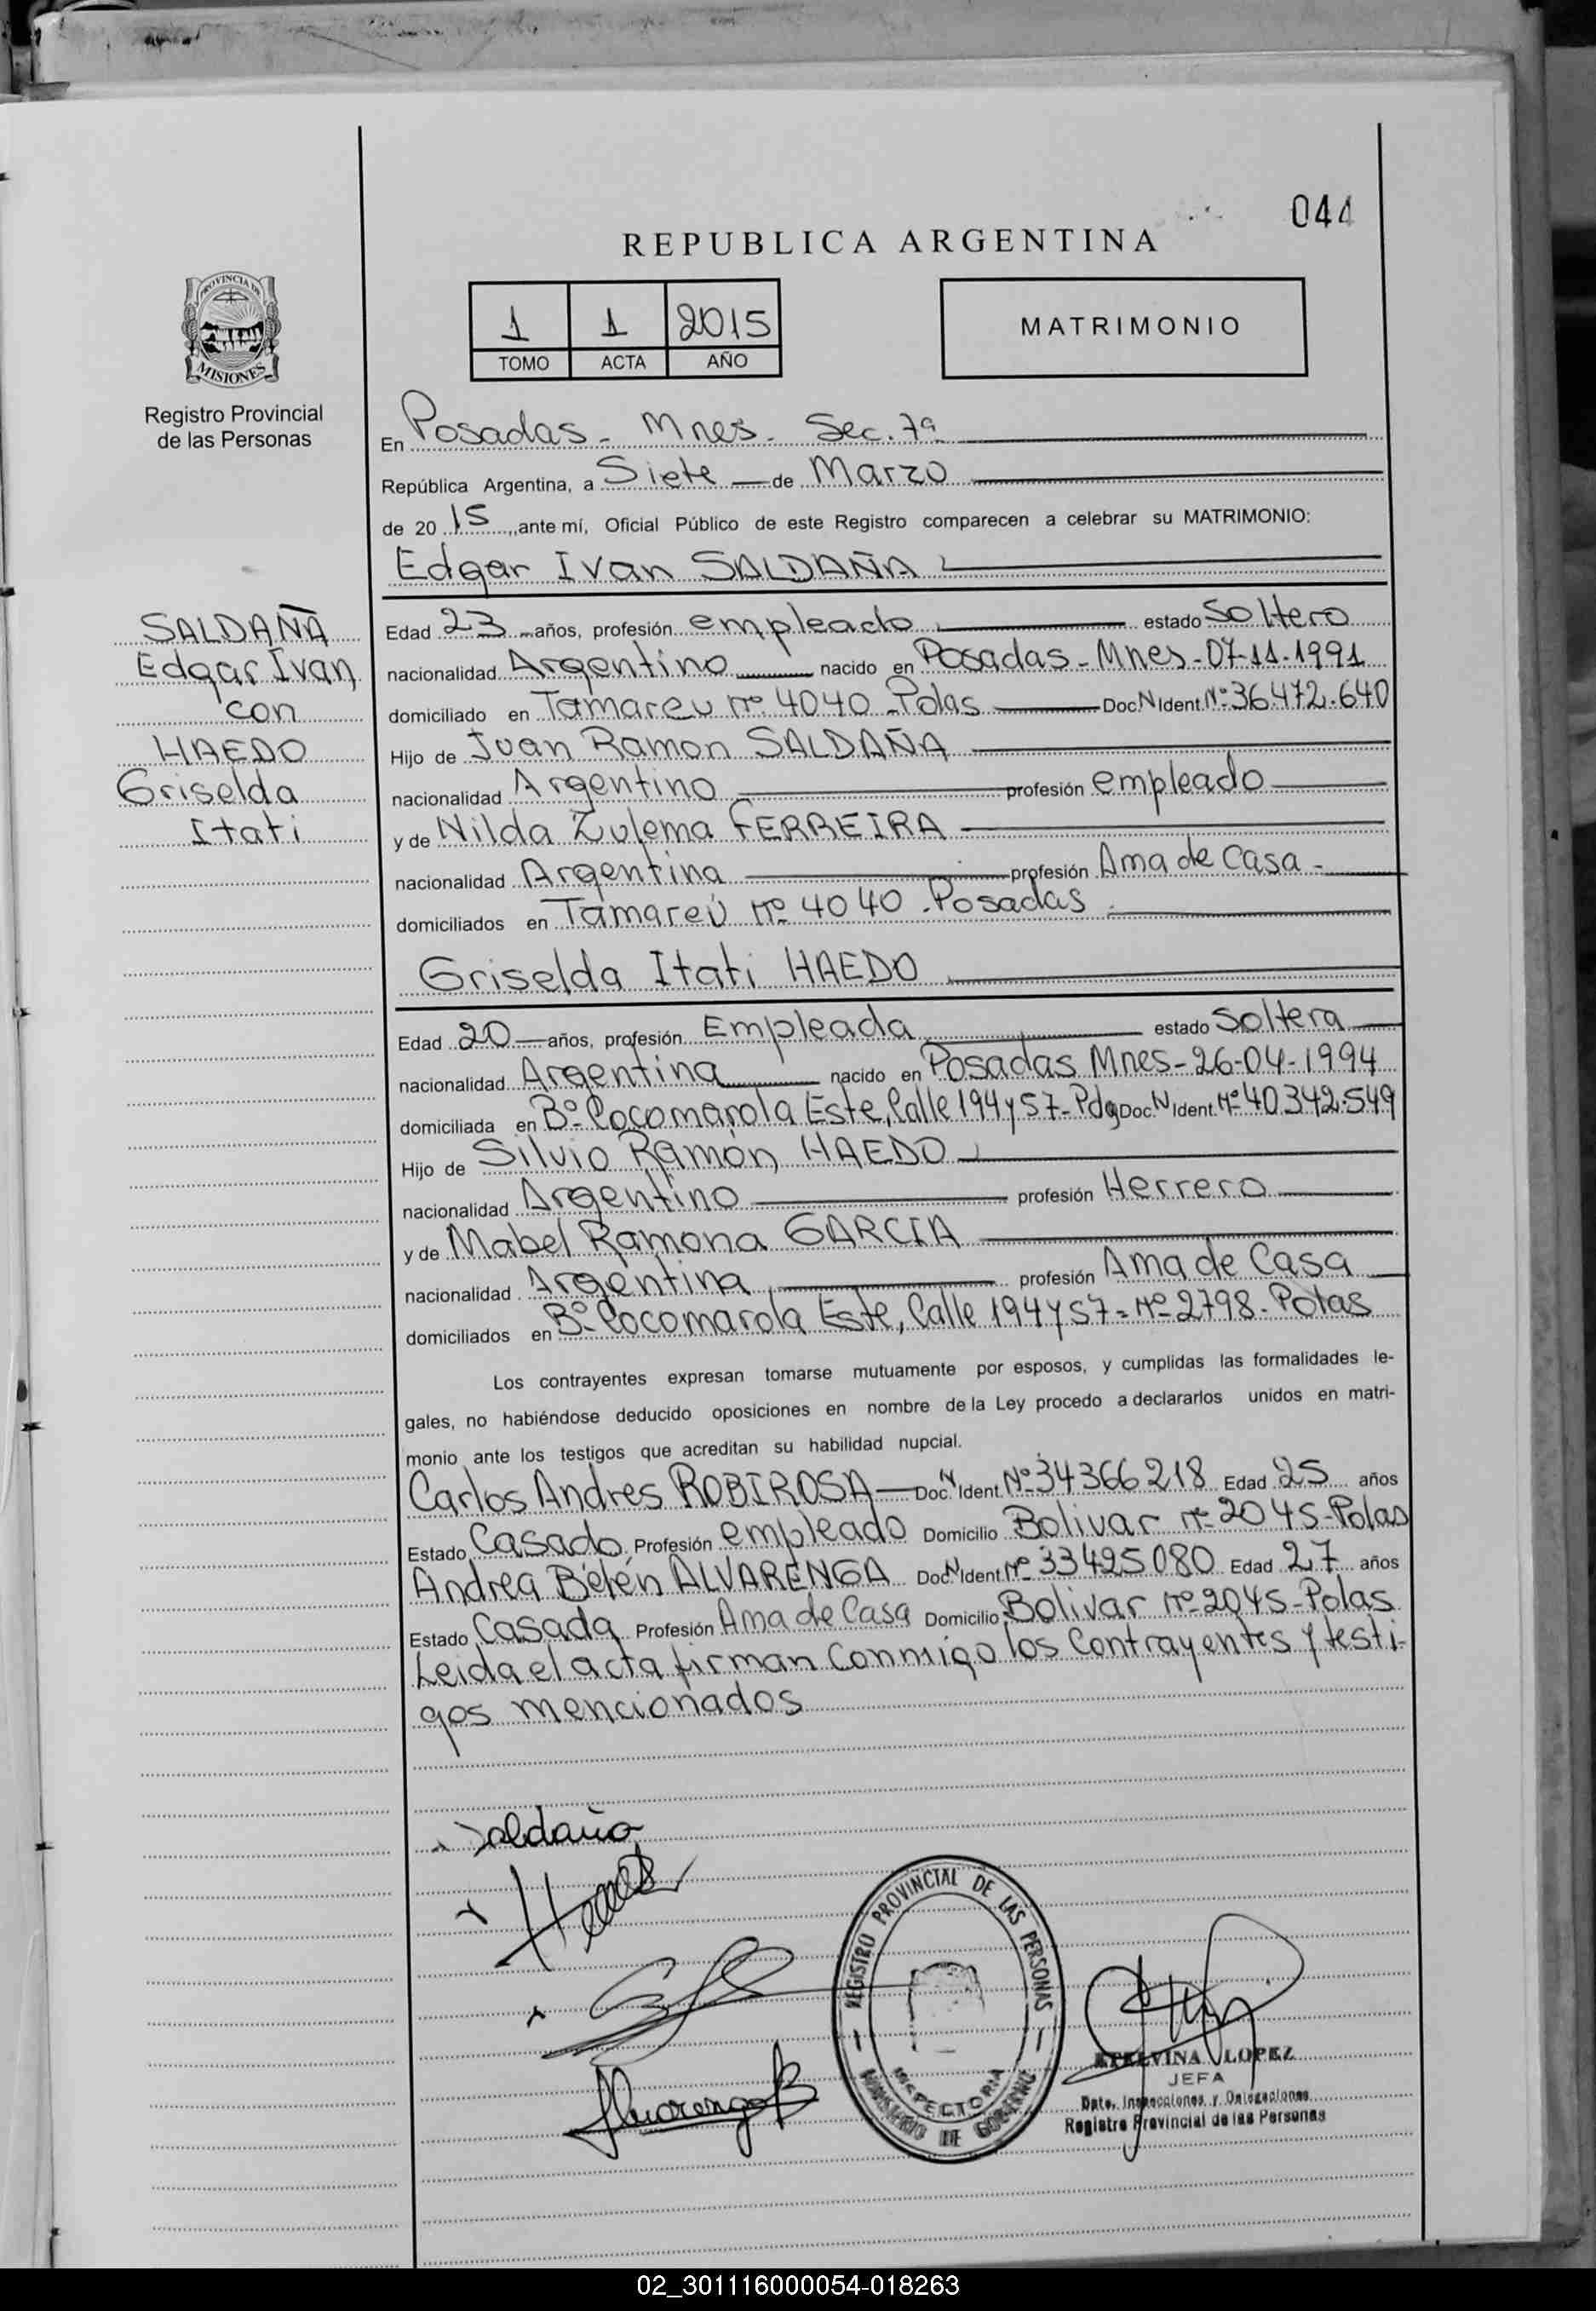 044
REPUBLICA ARGENTINA
1 1 2015
TOMO ACTA AÑO
MATRIMONIO
PROVINCIA DE
MISIONES
Registro Provincial
de las Personas
En Posadas - Mnes - Sec. 7a
República Argentina, a Siete de Marzo
de 2015, ante mí, Oficial Público de este Registro comparecen a celebrar su MATRIMONIO:
Edgar Ivan SALDAÑA
SALDAÑA
Edgar Ivan
con
HAEDO
Griselda
Itati
Edad 23 años, profesión empleado estado Soltero
nacionalidad Argentino nacido en Posadas - Mnes - 07-11-1991
domiciliado en Tamareu nº 4040 - Pdas Doc N Ident. Nº 36.472.640
Hijo de Juan Ramon SALDAÑA
nacionalidad Argentino profesión empleado
y de Nilda Zulema FERREIRA
nacionalidad Argentina profesión Ama de Casa -
domiciliados en Tamareú nº 4040 - Posadas
Griselda Itati HAEDO
Edad 20 años, profesión Empleada estado Soltera
nacionalidad Argentina nacido en Posadas Mnes - 26-04-1994
domiciliada en Bº Cocomarola Este, Calle 194 y 57 - Doc. N Ident. Nº 40.342.549
Hijo de Silvio Ramón HAEDO
nacionalidad Argentino profesión Herrero
y de Mabel Ramona GARCIA
nacionalidad Argentina profesión Ama de Casa
domiciliados en Bº Cocomarola Este, Calle 194 y 57 - Nº 2798 - Pdas
Los contrayentes expresan tomarse mutuamente por esposos, y cumplidas las formalidades le-
gales, no habiéndose deducido oposiciones en nombre de la Ley procedo a declararlos unidos en matri-
monio ante los testigos que acreditan su habilidad nupcial.
Carlos Andres ROBIROSA Doc. N Ident. Nº 34366218 Edad 25 años
Estado Casado Profesión empleado Domicilio Bolivar nº 2045 - Pdas
Andrea Belén ALVARENGA Doc. N Ident. Nº 33425080 Edad 27 años
Estado Casada Profesión Ama de Casa Domicilio Bolivar nº 2045 - Pdas
Leida el acta firman Conmigo los Contrayentes y testi-
gos mencionados
Saldaña
REGISTRO PROVINCIAL DE LAS PERSONAS
INSPECTORIA
MINISTERIO DE GOBIERNO
ETELVINA LOPEZ
JEFA
Dpto. Inspecciones y Delegaciones
Registro Provincial de las Personas
02_301116000054-018263